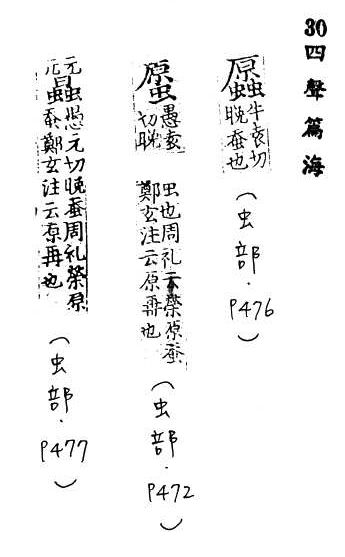 30四聲篇海
牛袁切
晚蚕也
（虫部．P476）
愚袁
切晚
虫也周礼云禁原蚕
鄭玄注云原再也
（虫部．P472）
元切晚蚕周礼禁原
蚕鄭玄注云原再也
（虫部．P477）